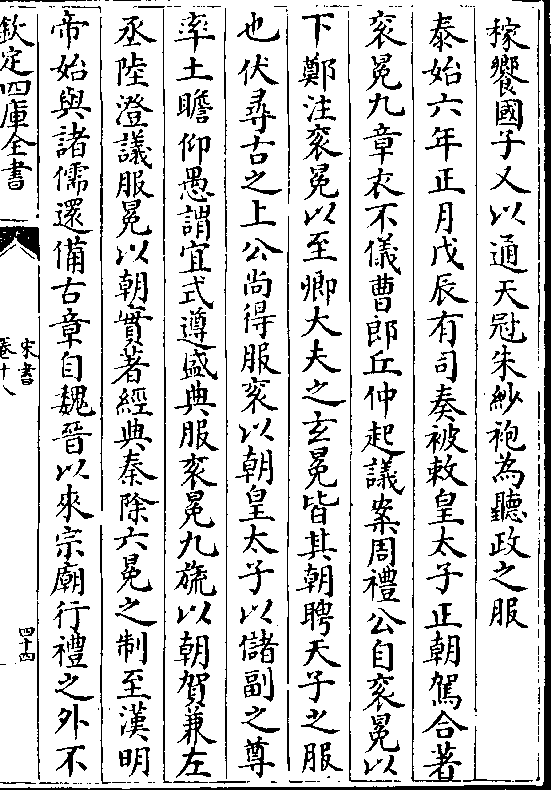 稼饗國子又以通天冠朱紗袍為聽政之服
泰始六年正月戊辰有司奏被敕皇太子正朝駕合著
衮冕九章衣不儀曹郎丘仲起議案周禮公自衮冕以
下鄭注衮冕以至卿大夫之玄冕皆其朝聘天子之服
也伏尋古之上公尚得服衮以朝皇太子以儲副之尊
率土瞻仰愚謂宜式遵盛典服衮冕九旒以朝賀兼左
丞陸澄議服冕以朝實著經典秦除六冕之制至漢明
帝始與諸儒還備古章自魏晉以來宗廟行禮之外不
欽定四庫全書
宋書
卷十八
四十四